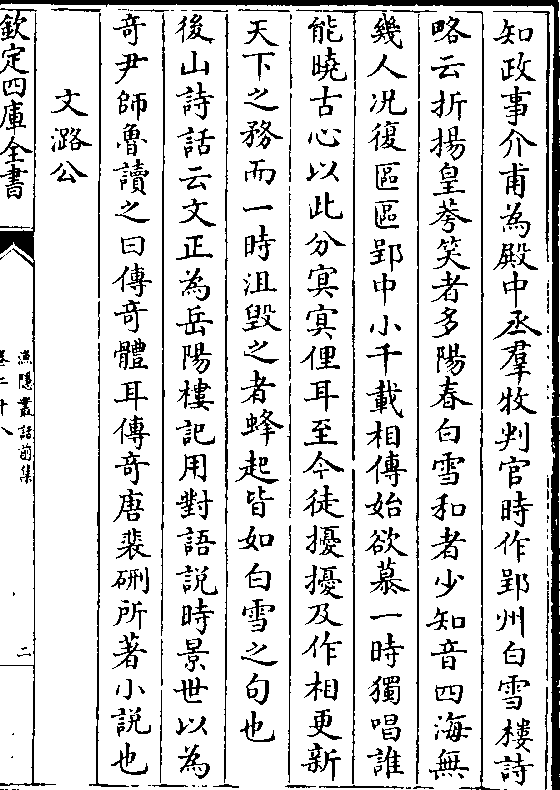 知政事介甫為殿中丞羣牧判官時作郢州白雪樓詩
略云折揚皇荂笑者多陽春白雪和者少知音四海無
幾人况復區區郢中小千載相傳始欲慕一時獨唱誰
能曉古心以此分㝠㝠俚耳至今徒擾擾及作相更新
天下之務而一時沮毀之者蜂起皆如白雪之句也
後山詩話云文正為岳陽樓記用對語説時景世以為
奇尹師魯讀之曰傳奇體耳傳奇唐裴硎所著小説也
文潞公
欽定四庫全書
漁隱叢話前集
卷二十八
二